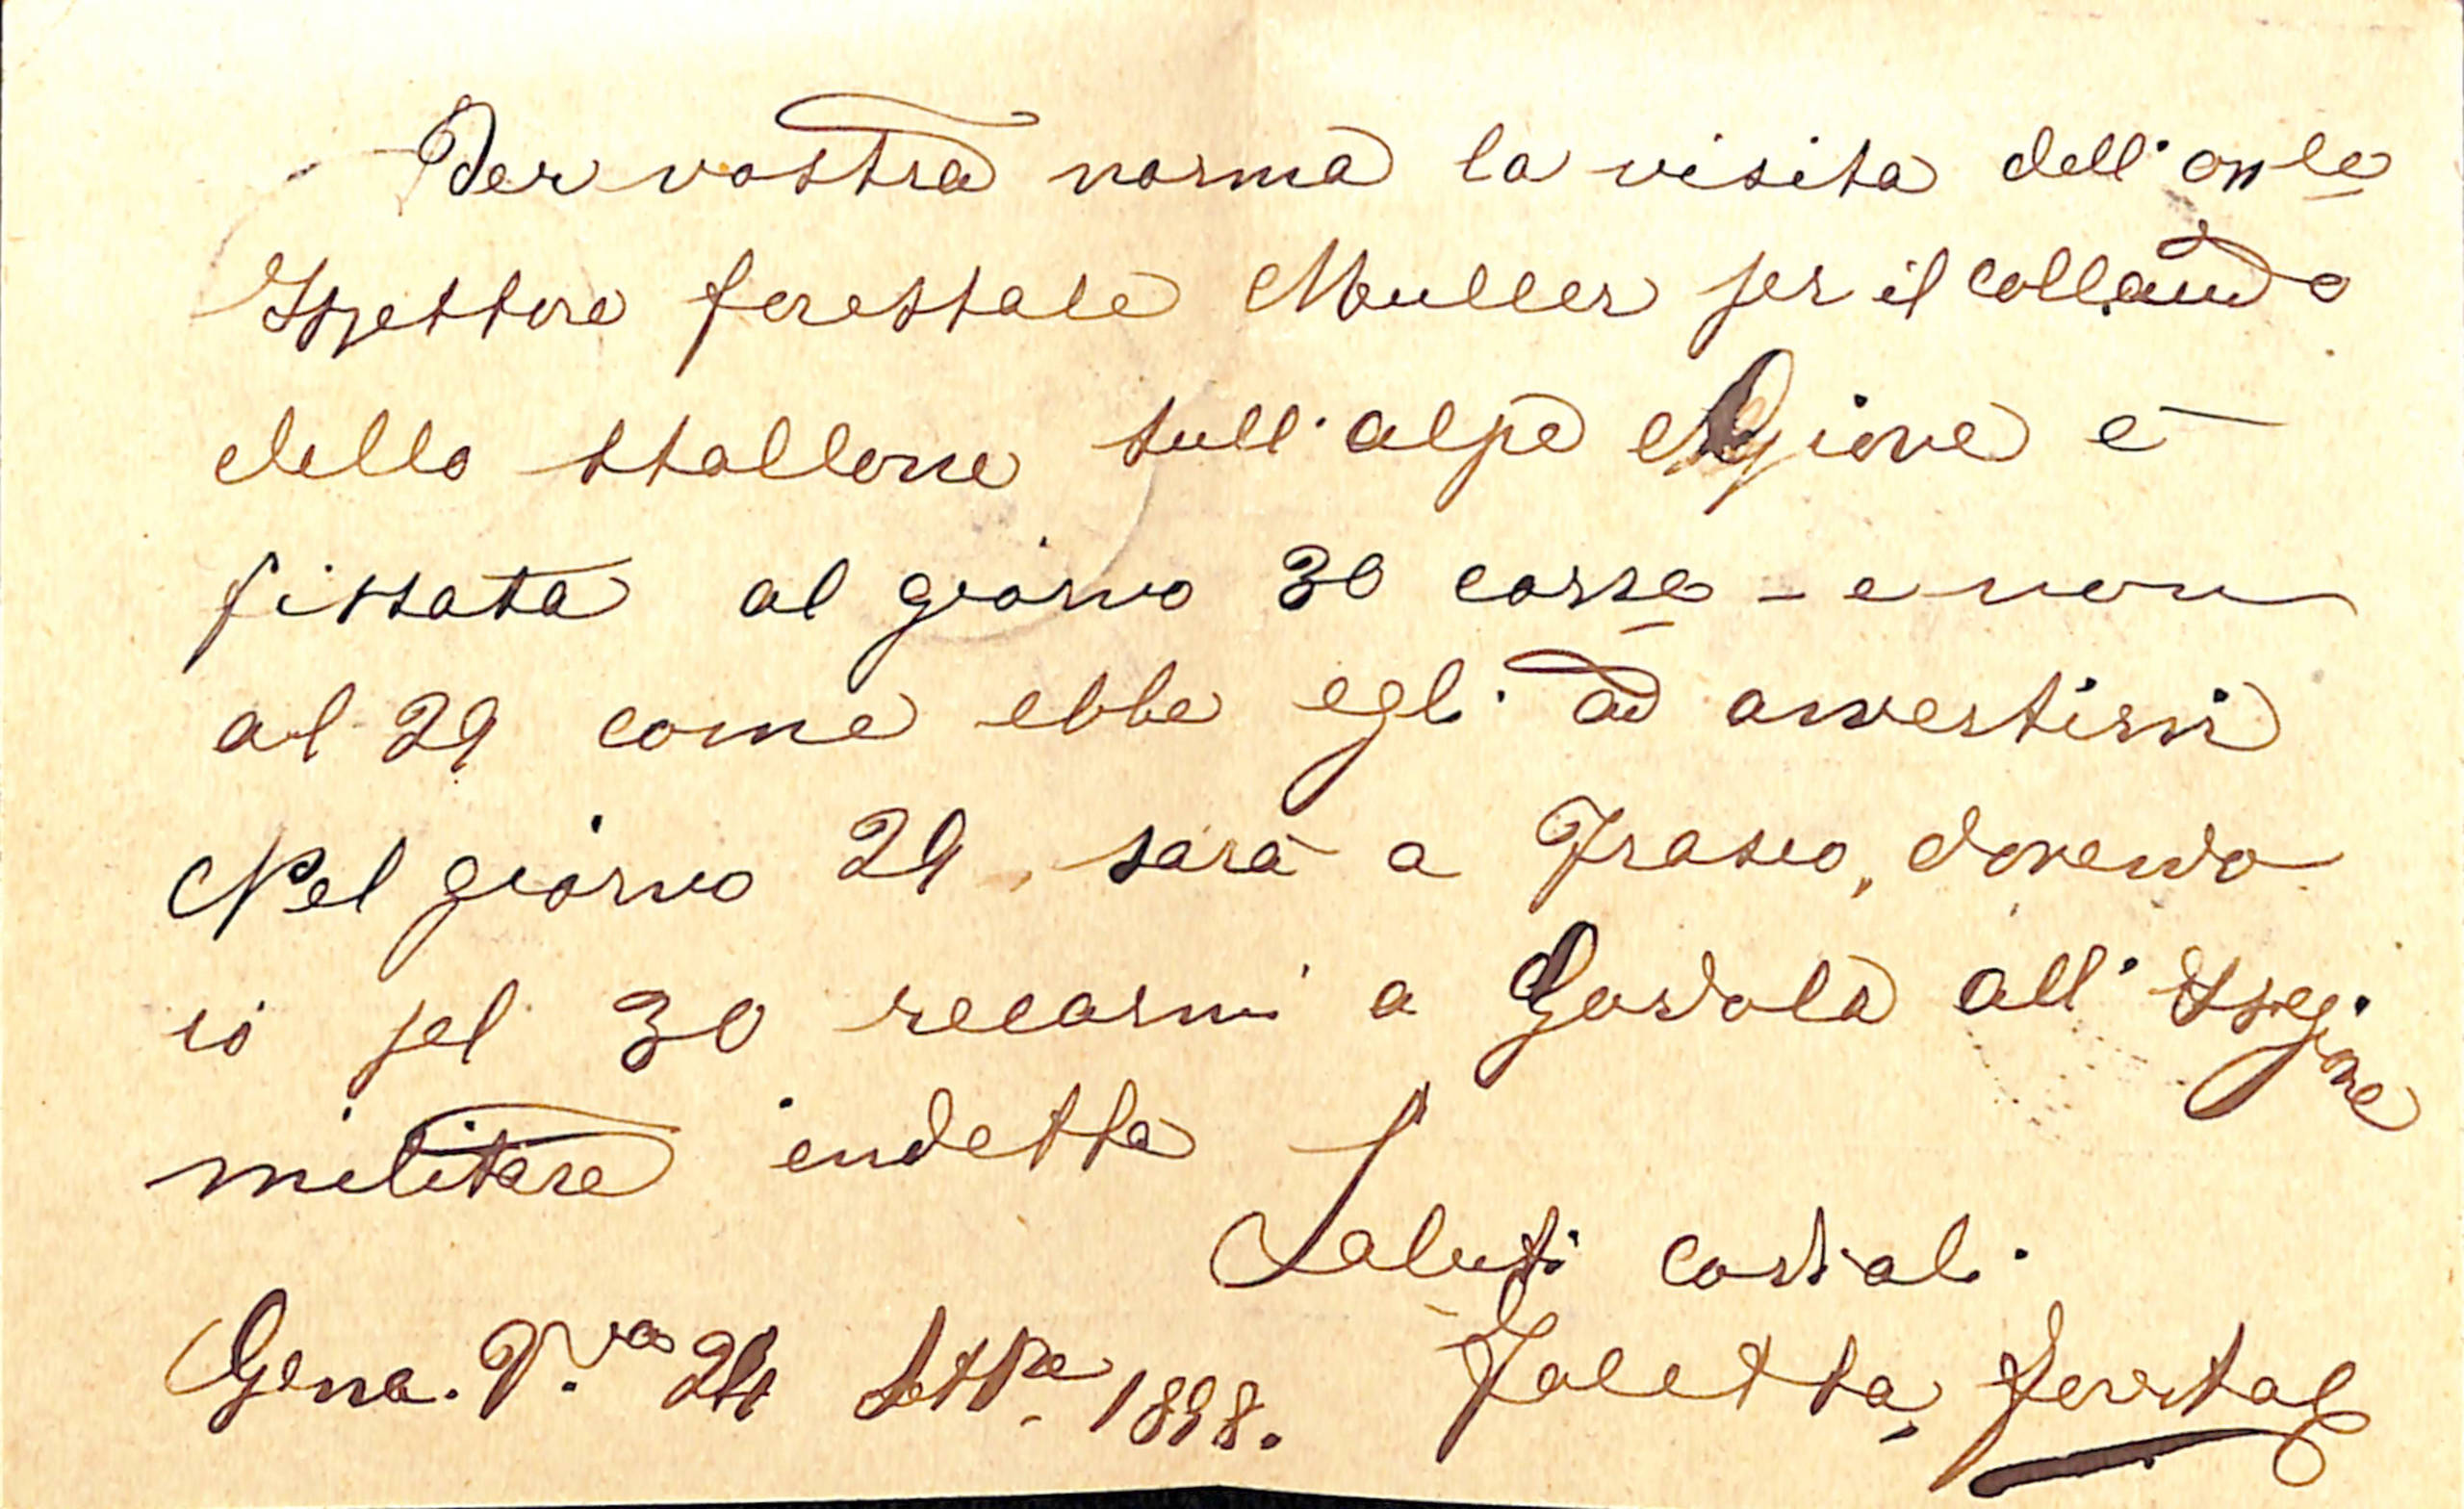 Per vostra norma la visita dell'onle
Ispettore forestale Muller per il collaudo
dello stallone sull'alpe Giove è
fissata al giorno 30 corre - e non
al 29 come ebbe egli ad avvertirvi
Nel giorno 29 sarà a Frasco, dovendo
io pel 30 recarmi a Gordola all'Ispez.one
militare indetta
Saluti cordiali
Gerra. V.va 24 1898.
Foletta, forstale